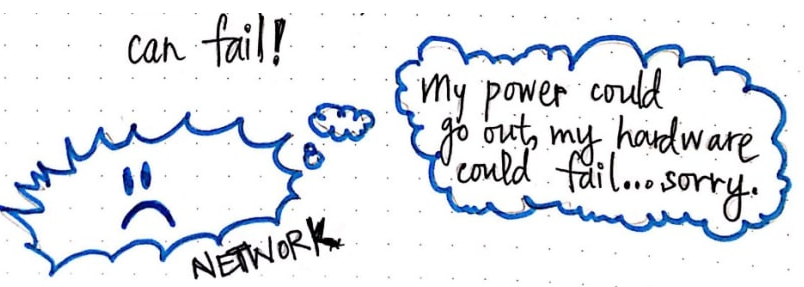 can fail!
My power could
go out, my hardware
could fail...sorry.
NETWORK